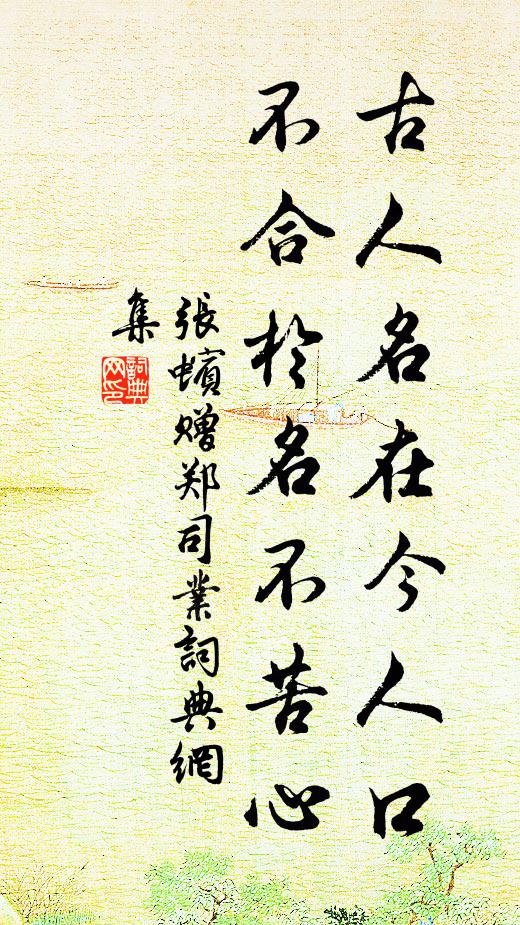 古人名在今人口
不合於名不苦心
張蠙赠郑司業詞典網
集
詞典
网印